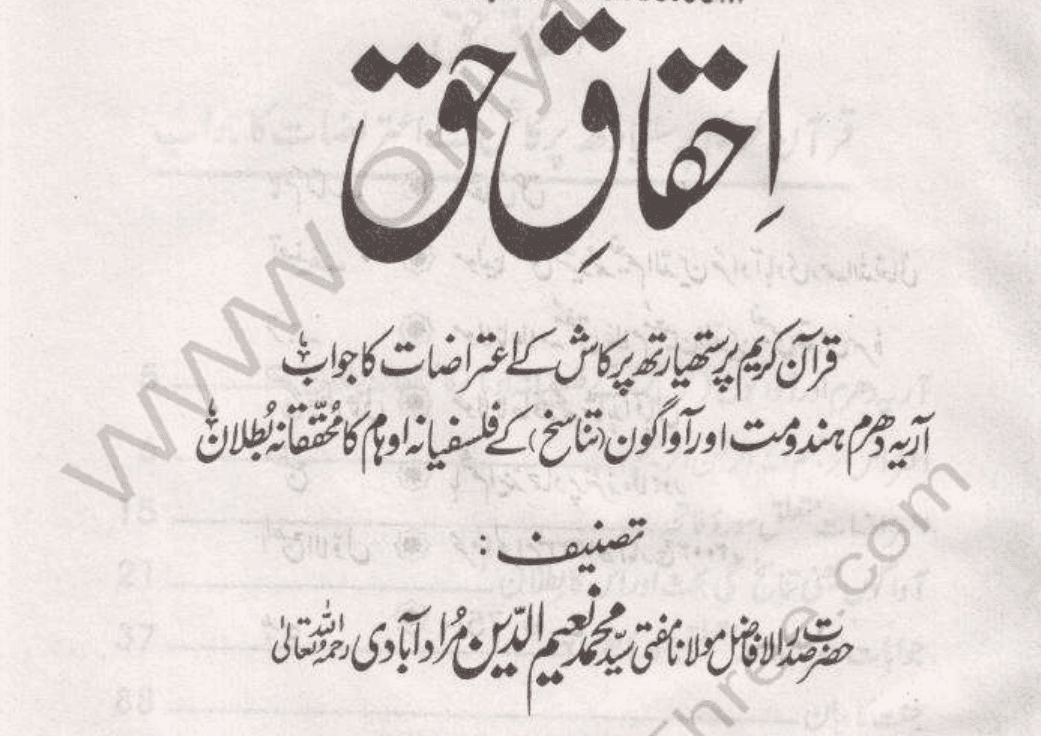 اِحقاقِ حق
قرآن کریم پر ستھیارتھ پرکاش کے اعتراضات کا جواب
آریہ دھرم ہندومت اور آواگون (تناسخ) کے فلسفیانہ اوہام کا مُحقّقانہ بُطلان
تصنیف :
حضرت صدرالافاضل مولانا مفتی سیّد محمد نعیم الدّین مُرادآبادی رحمۃ اللہ تعالیٰ